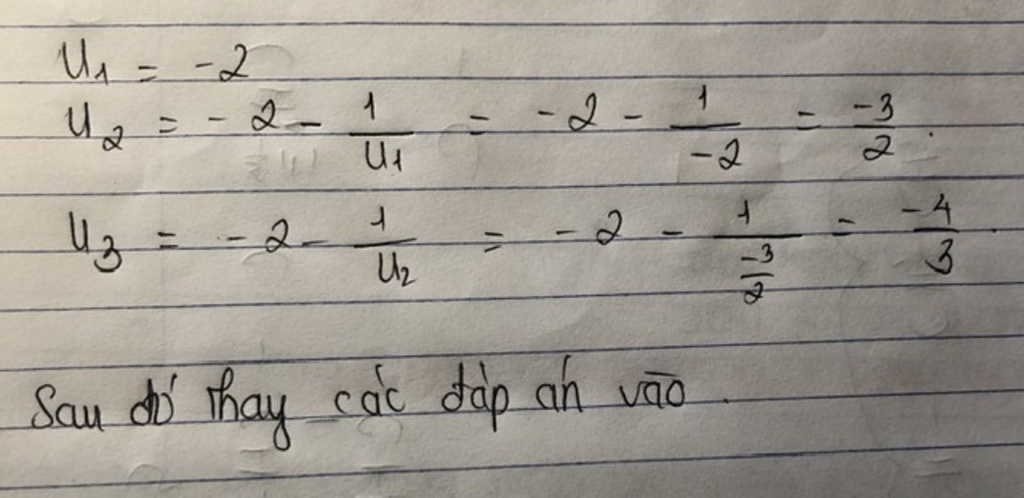 U1 = -2
U2 = -2 - 1/U1 = -2 - 1/-2 = -3/2.
U3 = -2 - 1/U2 = -2 - 1/(-3/2) = -4/3.
Sau đó thay các đáp án vào.